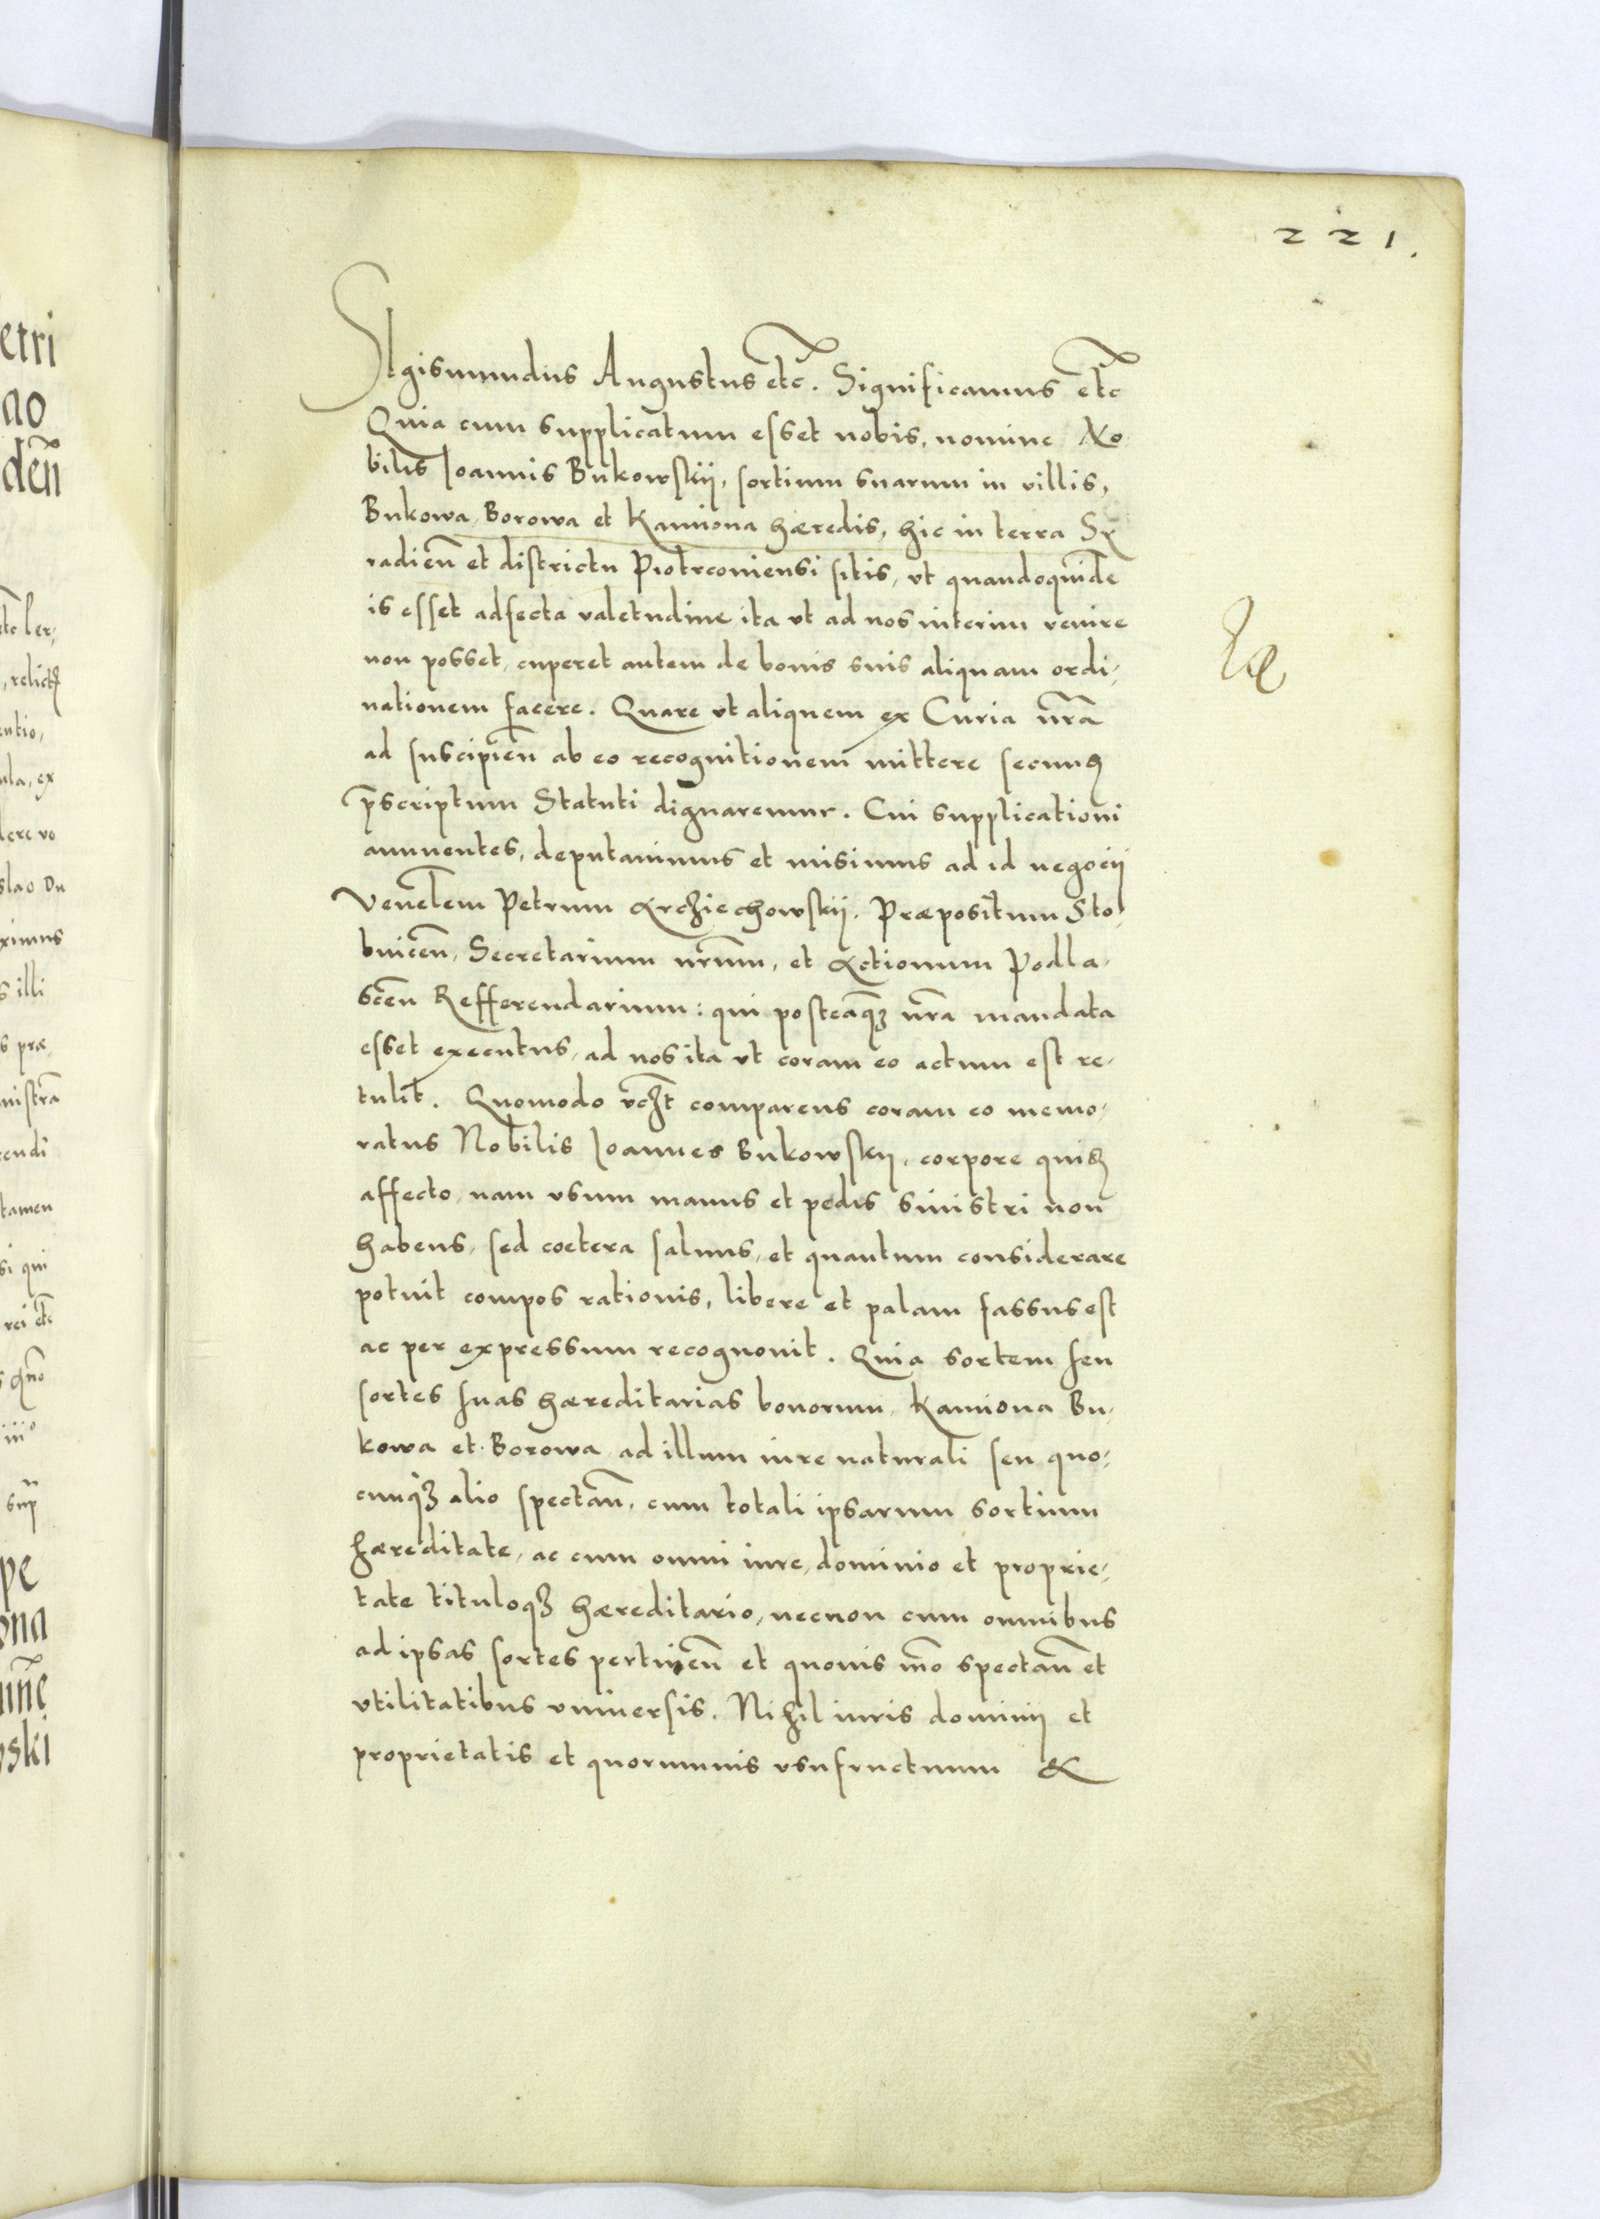 221.
SIgismundus Augustus etc. Significamus etc
Quia cum supplicatum esset nobis, nomine No
bilis Ioannis Bukowskij, sortium suarum in villis,
Bukowa, Borowa et Kamiona hæredis, hic in terra Sy
radień et districtu Piotrconiensi sitis, vt quandoquidē
is esset adfecta valetudine ita vt ad nos interim venire
non posset, cuperet autem de bonis suis aliquam ordi,
nationem facere. Quare vt aliquem ex Curia nrā
ad suscipień ab eo recognitionem mittere secund
pscriptum Statuti dignaremur. Cui supplicationi
annuentes, deputauimus et misimus ad id negocij
Venelem Petrum Arcziechowskij. Præpositum Sto,
bnicen, Secretarium nrūm, et Actionum Podla,
scen Refferendarium: qui posteaq3 nrā mandata
esset executus, ad nos ita vt coram eo actum est re,
tulit. Quomodo vczt comparens coram eo memo,
ratus Nobilis Ioannes Bukowskij, corpore quid
affecto, nam vsum manus et pedis sinistri non
habens, sed coetera saluus, et quantum considerare
potuit compos rationis, libere et palam fassus est
ac per expressum recognouit. Quia sortem seu
sortes suas hæreditarias bonorum, Kamiona Bu,
kowa et Borowa ad illum iure naturali seu quo,
cunq3 alio spectań, cum totali ipsarum sortium
hæreditate, ac cum omni iure, dominio et proprie,
tate tituloq3 hæreditario, necnon cum omnibus
ad ipsas sortes pertineń et quouis mō spectań et
vtilitatibus vniuersis. Nihil iuris dominij et
proprietatis et quorumuis vsufructuum &